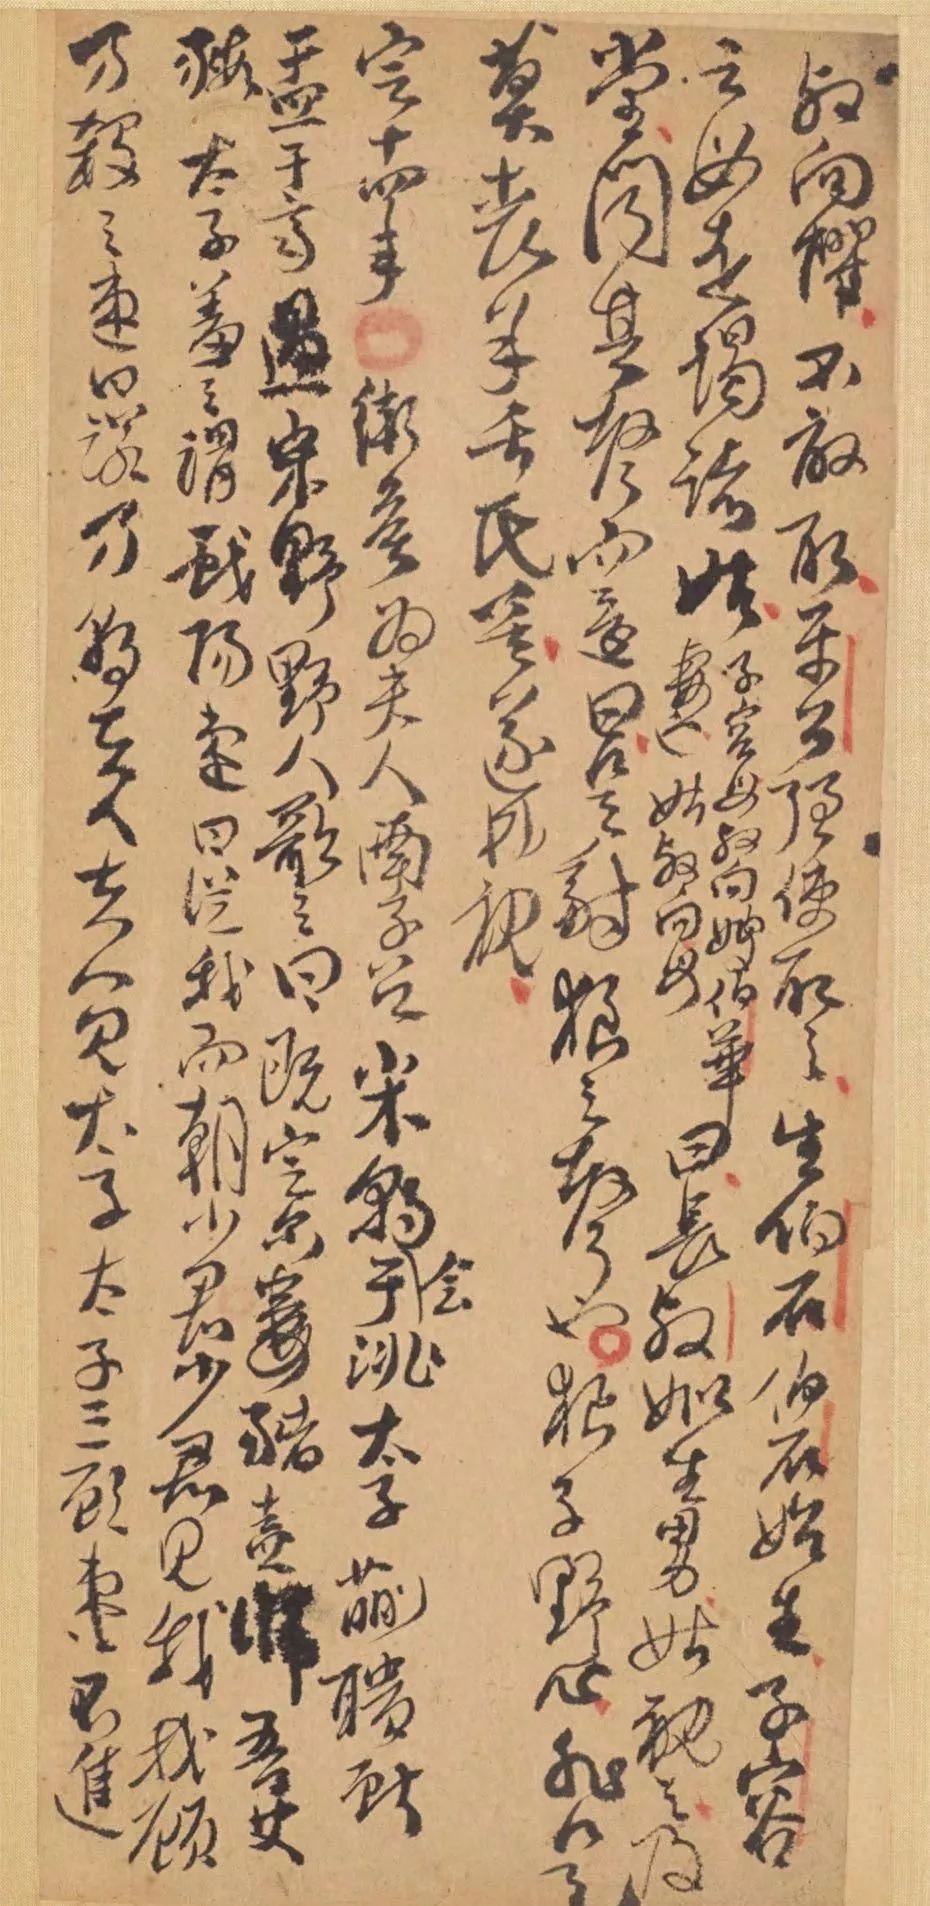 叔向懼不敢取平公强使取之生伯石伯石始生子容
之母走謁諸姑子容母叔向嫂伯華妻也姑叔向母曰長叔姒生男姑視之及
堂聞其聲而還曰是豺狼之聲也狼子野心非是
莫喪羊舌氏矣遂弗視
定十四年衛侯為夫人南子召宋朝會于洮太子蒯聵獻
盂于齊過宋野野人歌之曰既定爾婁豬盍歸吾艾
豭太子羞之謂戲陽速曰從我而朝少君少君見我我顧
乃殺之速曰諾乃朝夫人夫人見太子太子三顧速不進